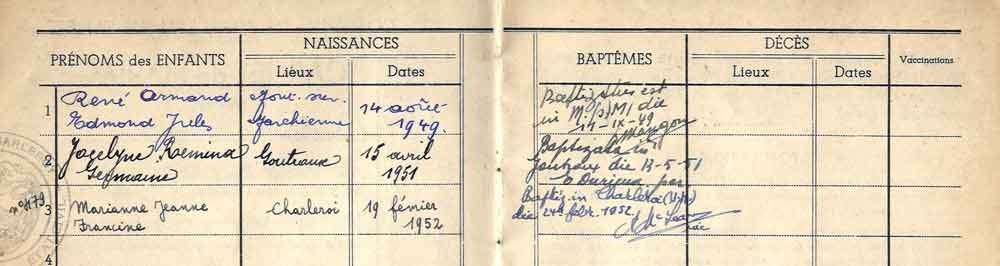 PRÉNOMS des ENFANTS
NAISSANCES
Lieux
Dates
BAPTÊMES
DÉCÈS
Lieux
Dates
Vaccinations
1
René Armand
Edmond Jules
Mont-sur-
Marchienne
14 août
1949.
Baptizatus est
in M. die
14-IX-49
2
Jocelyne Romina
Germaine
Goutroux
15 avril
1951
Baptizata in
Goutroux die 13-5-51
3
Marianne Jeanne
Francine
Charleroi
19 février
1952
Baptiz. in Charleroi
die 24a febr. 1952.
4